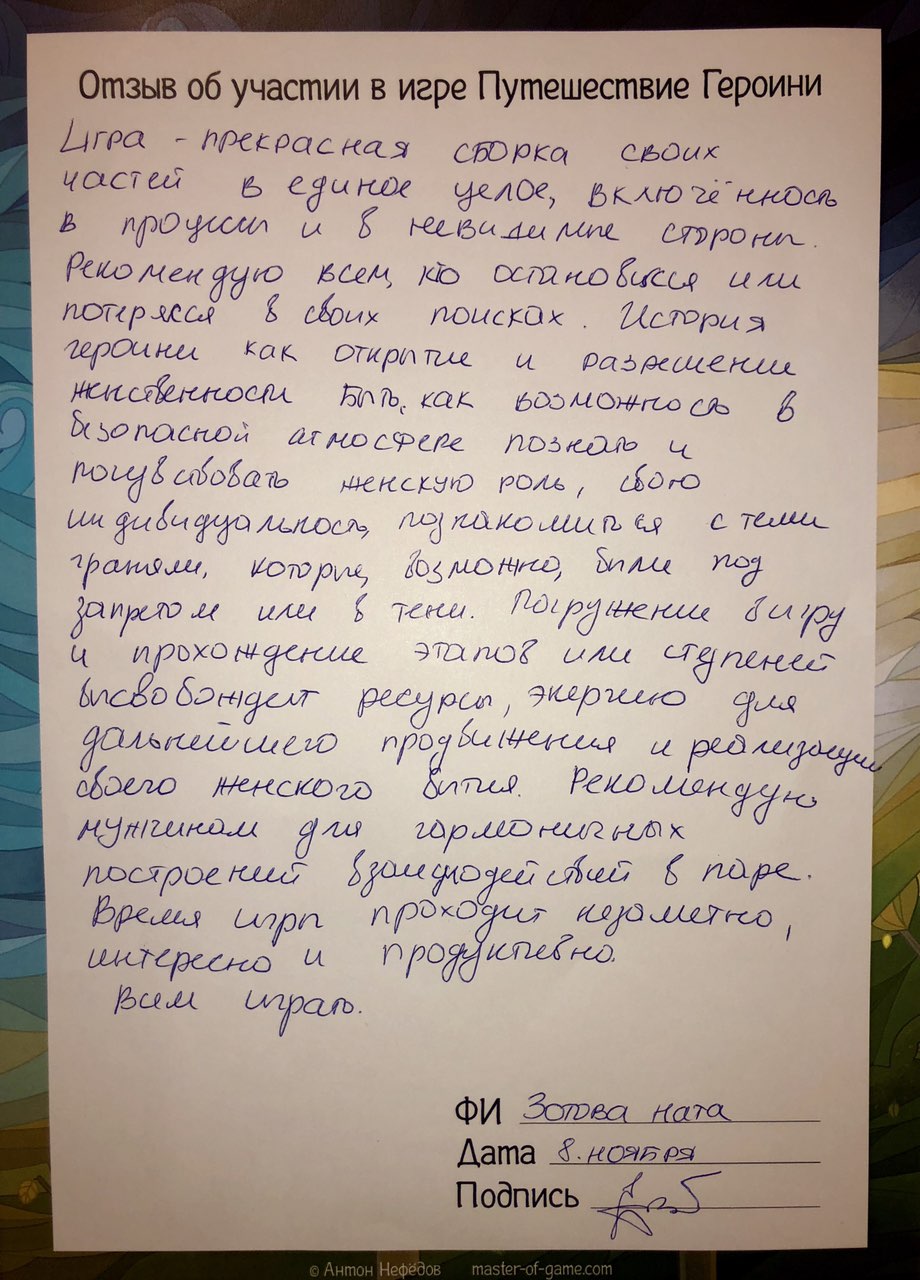 Отзыв об участии в игре Путешествие Героини
Игра - прекрасная сборка своих
частей в единое целое, включённость
в процессы и в невидимые стороны.
Рекомендую всем, кто остановился или
потерялся в своих поисках. История
героини как открытие и разрешение
женственности быть, как возможность в
безопасной атмосфере познать и
почувствовать женскую роль, свою
индивидуальность, познакомиться с теми
гранями, которые, возможно, были под
запретом или в тени. Погружение в игру
и прохождение этапов или ступеней
высвобождает ресурсы, энергию для
дальнейшего продвижения и реализации
своего женского бытия. Рекомендую
мужчинам для гармоничных
построений взаимодействий в паре.
Время игры проходит незаметно,
интересно и продуктивно.
Всем играть.
ФИ Зотова ната
Дата 8. ноября
Подпись
© Антон Нефёдов master-of-game.com